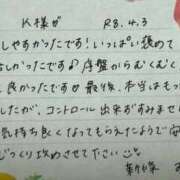 K様♂ R8.4.3
しやすかったです！いっぱい褒めて
しかったです♪序盤からむくむく
おすがです☆最後、本当はもっ
したが、コントロール出来ずすみません
気持ち良くなってもらえたようで
じっくり攻めさせてください
新條